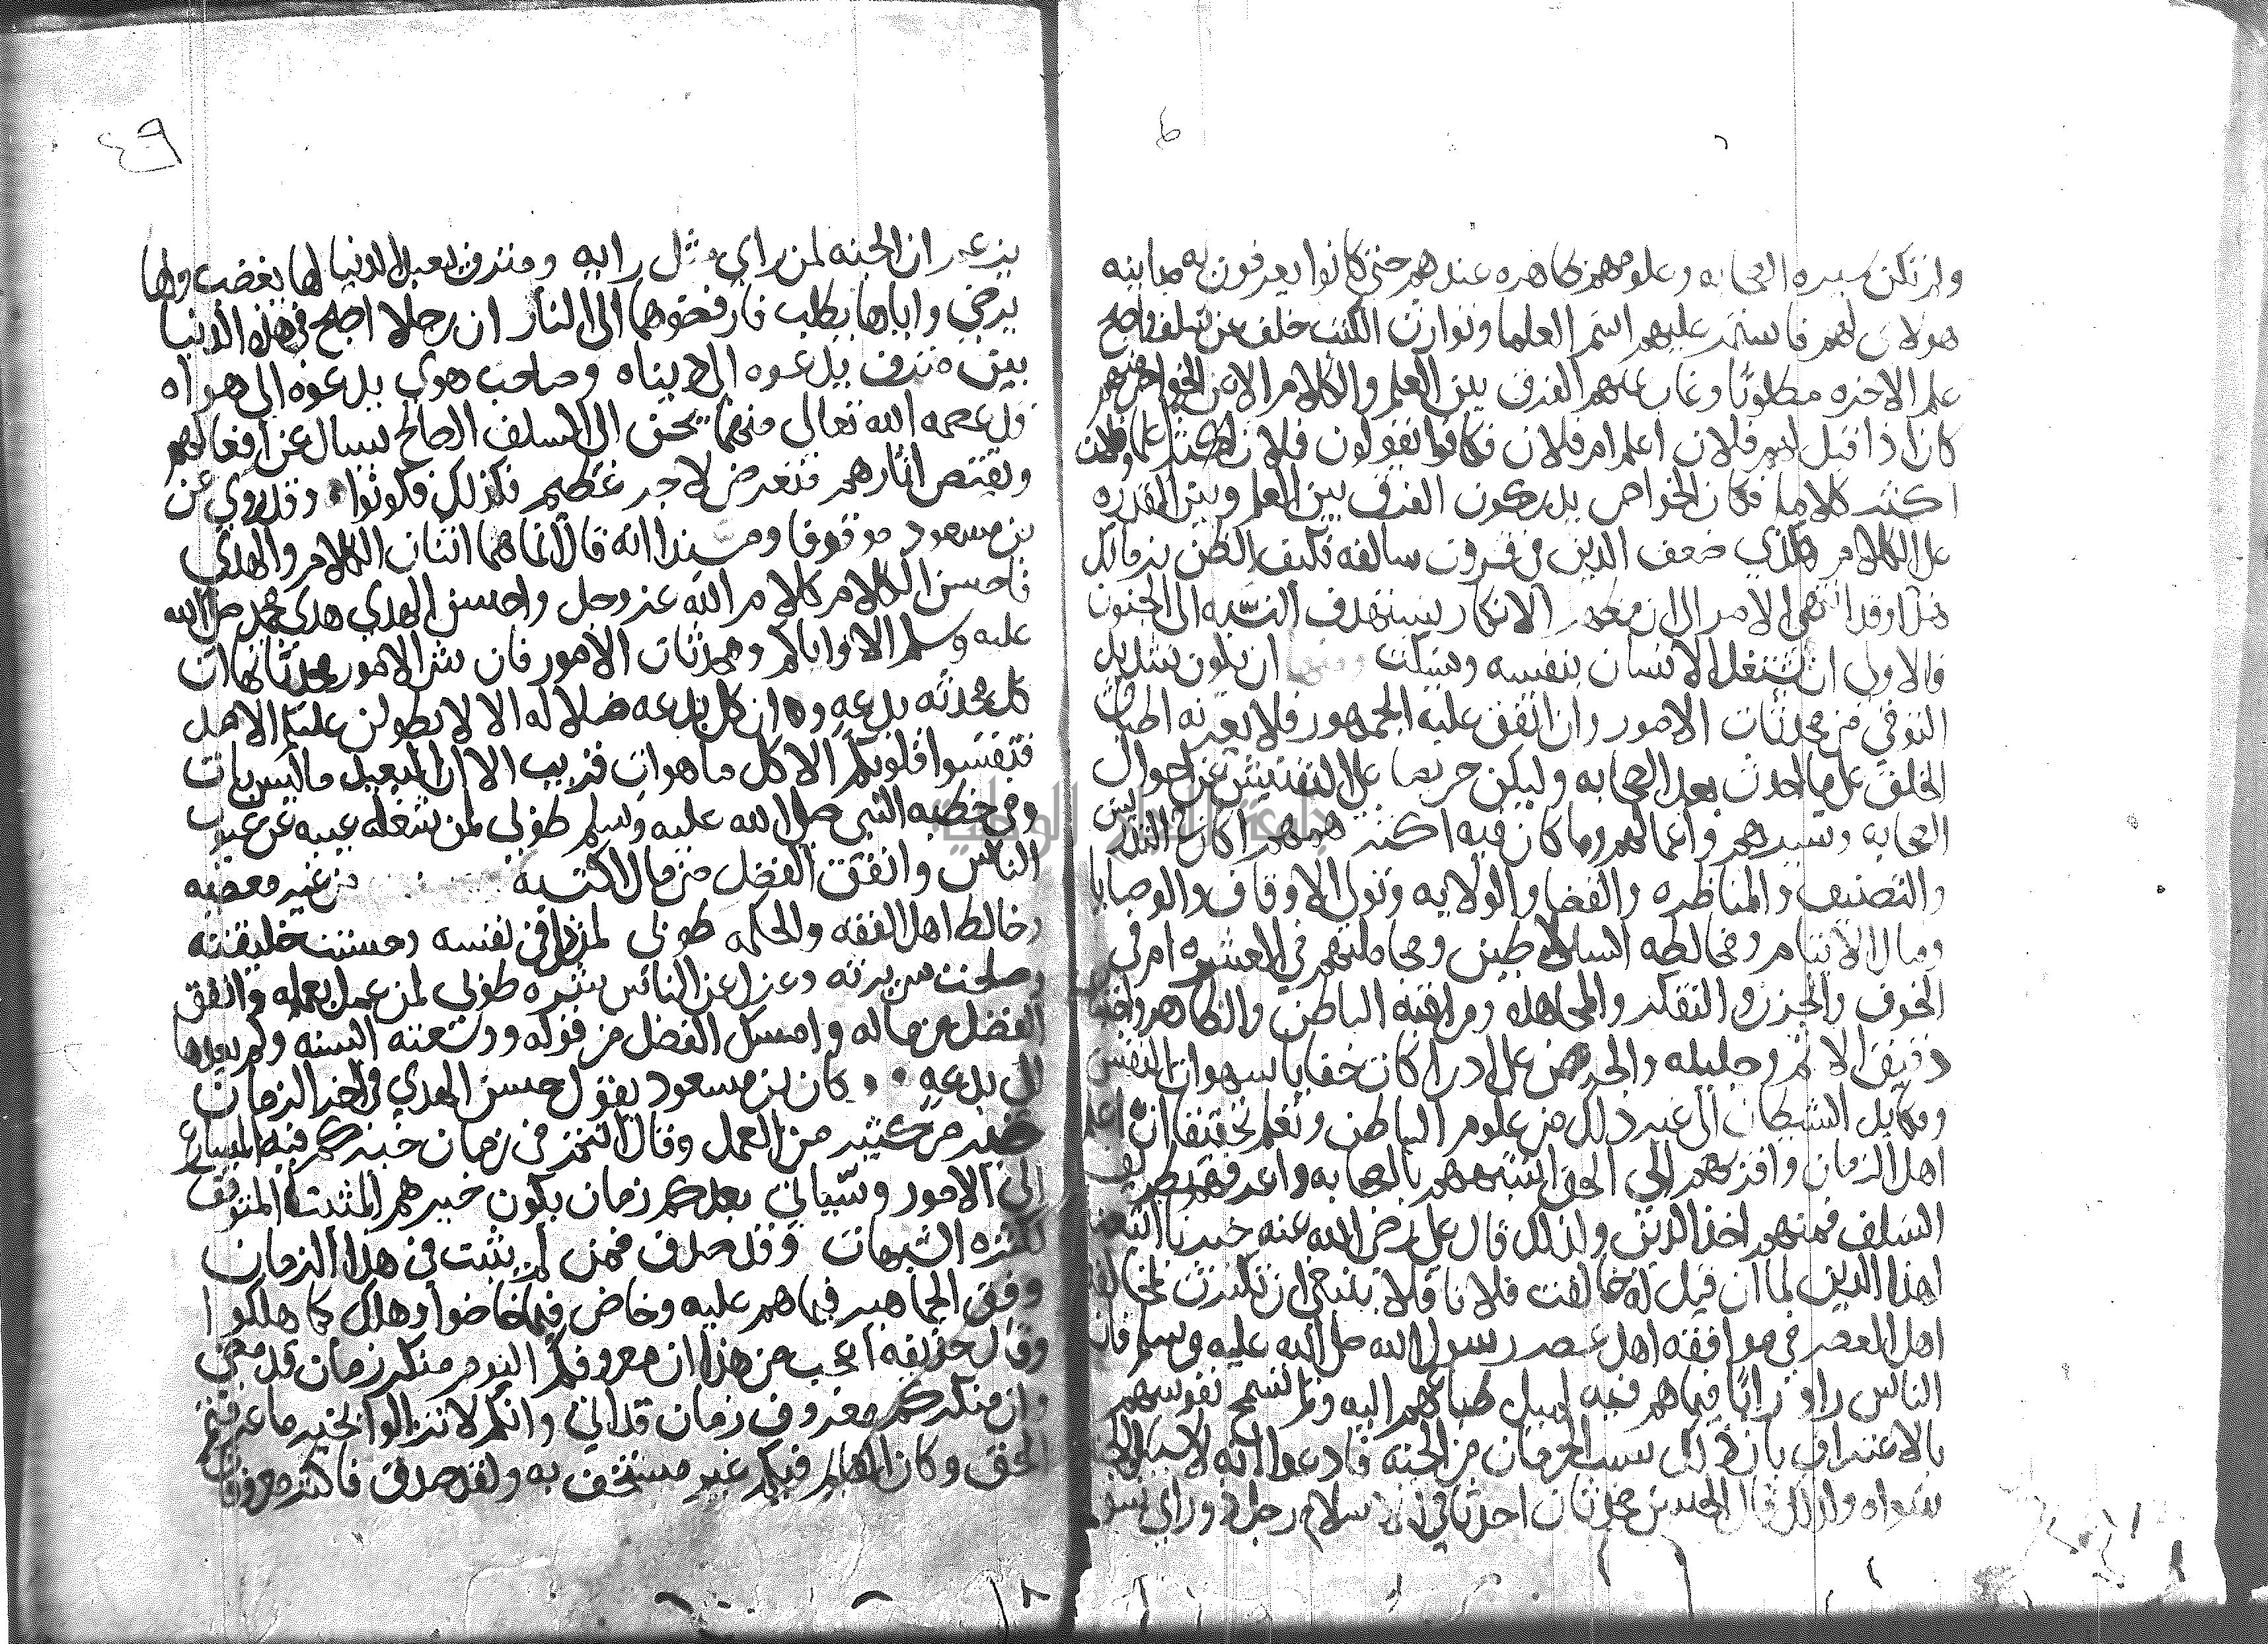 ولم تكن سيره الصحابه وعلومهم ظاهره عندهم حتى كانوا يعرفون به مباينه
هولاى لهم فاستمر عليهم اسم العلما وتوارث اللقب خلف عن سلف واصبح
علم الاخره مطلوبا وغاب عنهم الفرق بين العلم والكلام الا عن الخواص منهم
كان اذا قيل لهم فلان اعلم ام فلان فكانوا يقولون فلان اكثر علما وفلان
اكثر كلاما فكان الخواص يدركون الفرق بين العلم وبين القدره
على الكلام هكذى ضعف الدين فى قرون سالفه فكيف الظن بزمانك
هذا وقد انتهى الامر الى ان مظهر الانكار يستهدف النسبه الى الجنون
فالاولى ان يشتغل الانسان بنفسه ويسكت ومنها ان يكون شديد
التوقى من محدثات الامور وان اتفق عليه الجمهور فلا يغرنه اطباق
الخلق على ما احدث بعد الصحابه وليكن حريصا على التفتيش عن احوال
الصحابه وسيرهم واعمالهم وما كان فيه اكثر همهم اكان فى التدريس
والتصنيف والمناظره والقضا والولايه وتولى الاوقاف والوصايا
ومال الايتام ومخالطه السلاطين ومجاملتهم فى العشره ام فى
الخوف والحزن والتفكر والمجاهده ومراقبه الباطن والظاهر واجتناب
دقيق الاثم وجليله والحرص على ادراكات خفايا شهوات النفس
ومكايد الشيطان الى غير ذلك من علوم الباطن وتعلم تحقيقا ان اعلم
اهل الزمان واقربهم الى الحق اشبههم بالصحابه واعرفهم بطريق
السلف فمنهم اخذ الدين ولذلك قال على رضى الله عنه خيرنا اتبعنا
لهذا الدين لما ان قيل له خالفت فلانا فلا ينبغى ان تكترث لمخالفه
اهل العصر فى موافقه اهل عصر رسول الله صلى الله عليه وسلم فان
الناس راو رايا فيما هم فيه لميل طباعهم اليه ولم تسمح نفوسهم
بالاعتراف بان ذلك سبب الحرمان من الجنه فادعوا انه لا سبيل الى الجنه
سواه ولذلك قال الحسن محدثان احدثا فى الاسلام رجل ذو راى سو
٤٩
يزعم ان الجنه لمن راى مثل رايه ومترف يعبد الدنيا لها يغضب ولها
يرضى واياها يطلب فارفضوهما الى النار ان رجلا اصبح فى هذه الدنيا
بين مترف يدعوه الى دنياه وصاحب هوى يدعوه الى هواه
قد عصمه الله تعالى منهما يحن الى السلف الصالح يسال عن افعالهم
ويقتص اثارهم متعرض لاجر عظيم فكذلك فكونوا وقد روى عن
بن مسعود موقوفا ومسندا انه قال انما هما اثنتان الكلام والهدى
فاحسن الكلام كلام الله عز وجل واحسن الهدى هدى محمد صلى الله
عليه وسلم الا واياكم ومحدثات الامور فان شر الامور محدثاتها ان
كل محدثه بدعه وان كل بدعه ضلاله الا لا يطولن عليكم الامد
فتقسوا قلوبكم الا كل ما هو ات قريب الا ان البعيد ما ليس بات
وفى خطبه النبى صلى الله عليه وسلم طوبى لمن شغله عيبه عن عيوب
الناس وانفق الفضل من مال اكتسبه من غير معصيه
وخالط اهل الفقه والحكمه طوبى لمن ذل فى نفسه وحسنت خليقته
وصلحت سريرته وعزل عن الناس شره طوبى لمن عمل بعلمه وانفق
الفضل من ماله وامسك الفضل من قوله ووسعته السنه ولم يعدها
الى بدعه كان بن مسعود يقول حسن الهدى فى اخر الزمان
خير من كثير من العمل وقال انتم فى زمان خيركم فيه المسارع
الى الامور وسياتى بعدكم زمان يكون خيرهم المثبت المتوقف
لكثره الشبهات وقد صدق فمن لم يثبت فى هذا الزمان
وفق الجماهير فيما هم عليه وخاض فيما خاضوا وهلك كما هلكوا
وقال حذيفه اعجب من هذا ان معروفكم اليوم منكر زمان قد مضى
وان منكركم معروف زمان قد اتى وانكم لا تزالوا بخير ما عرفتم
الحق وكان العالم فيكم غير مستخف به ولقد صدق فاكثر معروفات